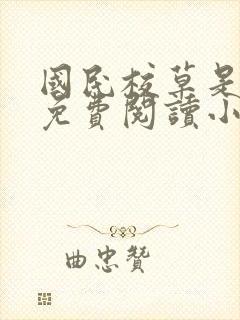 國民校草是
免費閱讀小
曲忠贊